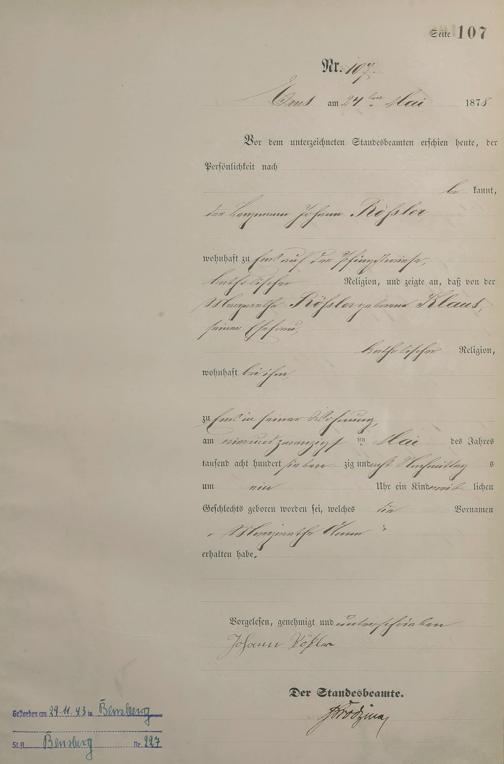 Seite 107
Nr. 107.
Ems am 24ten Mai 1878
Vor dem unterzeichneten Standesbeamten erschien heute, der
Persönlichkeit nach
be kannt,
der Bergmann Johann Rößler
wohnhaft zu Ems auf der Pfingstwiese,
katholischer Religion, und zeigte an, daß von der
Margarethe Rößler geborene Klaus,
seiner Ehefrau,
katholischer Religion,
wohnhaft bei ihm,
zu Ems in seiner Wohnung,
am vierundzwanzigsten Mai des Jahres
tausend acht hundert sieben zig und acht Nachmittag s
um ein Uhr ein Kind weib lichen
Geschlechts geboren worden sei, welches die Vornamen
„ Margarethe Anna “
erhalten habe.
Vorgelesen, genehmigt und unterschrieben
Johann Rößler
Der Standesbeamte.
Gestorben am 29.11.43 in Bensberg
St.A. Bensberg Nr. 227